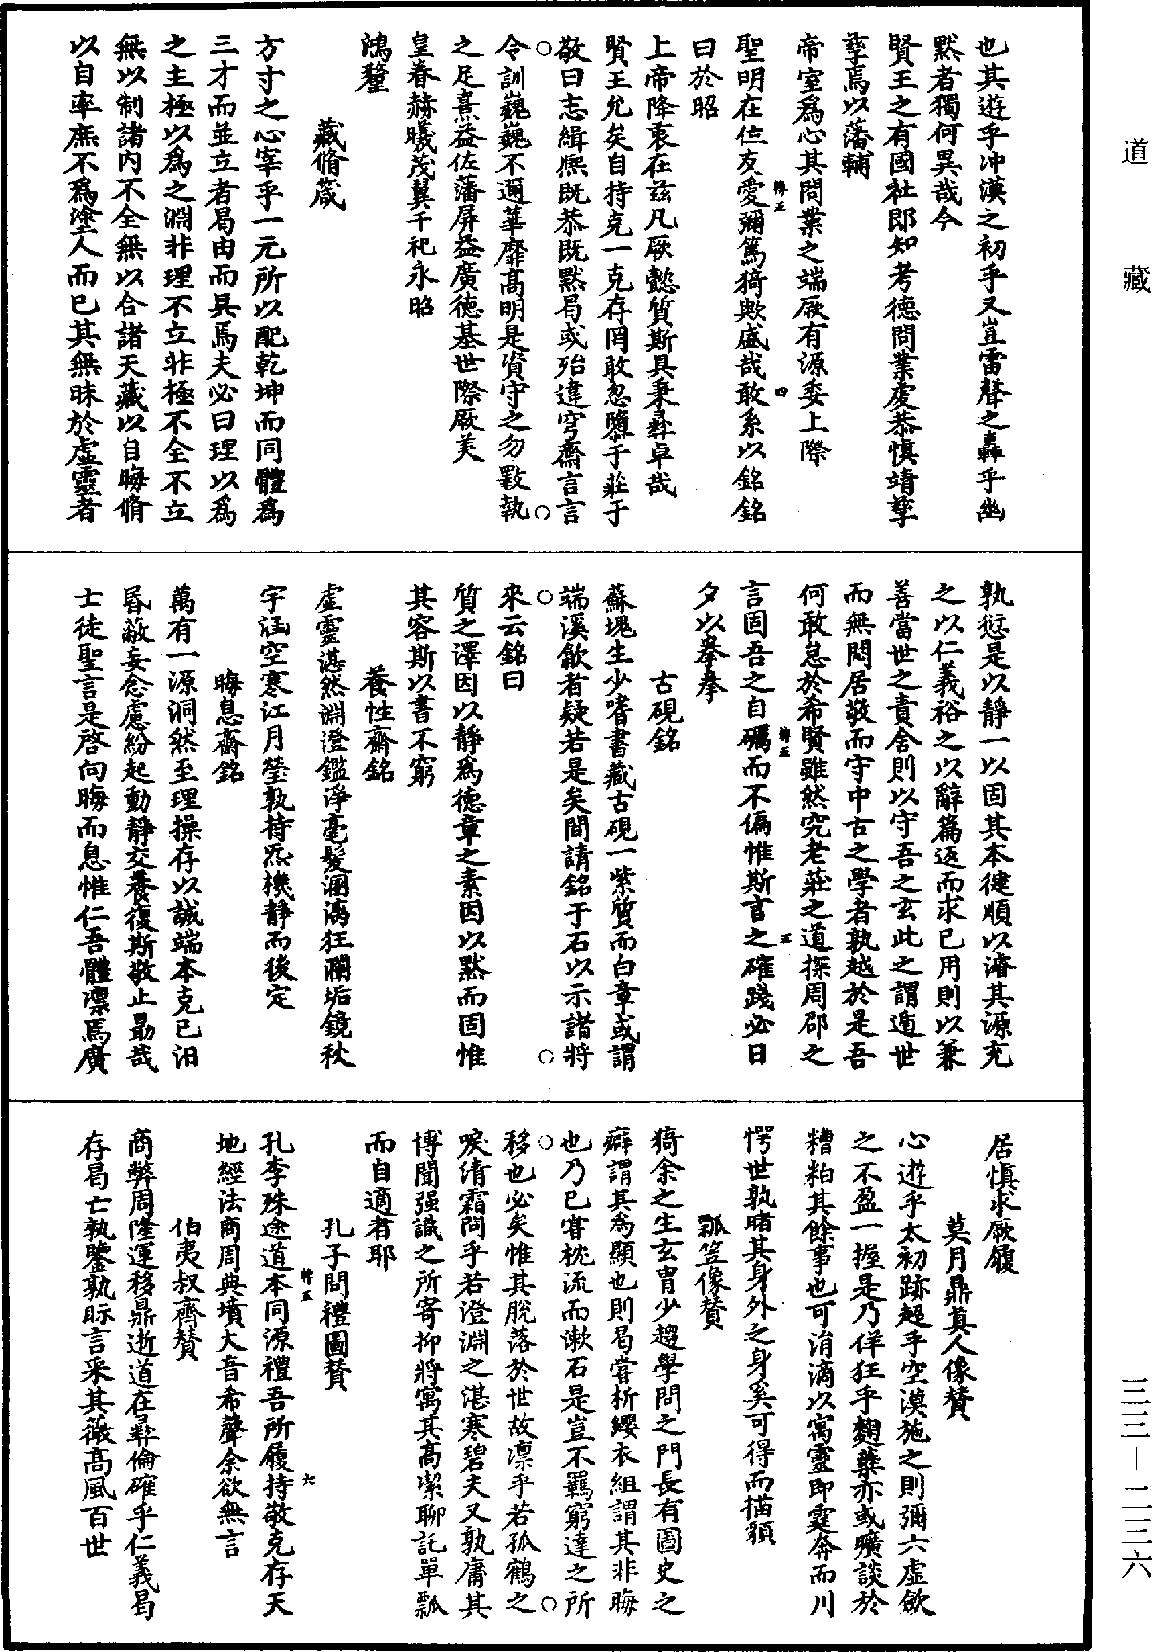 道藏
三三—二三六
也其遊乎冲漠之初乎又豈雷聲之轟乎幽
黙者獨何異哉今
賢王之有國社即知考德問業處恭慎靖孳
孳焉以藩輔
帝室爲心其問業之端厥有源委上際
聖明在位友愛彌篤猗歟盛哉敢系以銘銘
曰於昭
上帝降衷在兹凡厥懿質斯具秉彝卓哉
賢王允矣自持克一克存罔敢忽隳于莊于
敬曰志緝熈既恭既黙曷或殆違穹齋言言
令訓巍巍不邇華靡高明是資守之勿斁執
之足熹益佐藩屏益廣德基世際厥美
皇春赫曦茂翼千祀永昭
鴻釐
藏脩箴
方寸之心宰乎一元所以配乾坤而同體爲
三才而並立者曷由而具焉夫必曰理以爲
之主極以爲之淵非理不立非極不全不立
無以制諸内不全無以合諸天藏以自晦脩
以自率庶不爲塗人而已其無昧於虚靈者
孰愆是以靜一以固其本健順以濬其源充
之以仁義裕之以辭篇返而求已用則以兼
善當世之責舍則以守吾之玄此之謂遁世
而無悶居敬而守中古之學者孰越於是吾
何敢怠於希賢雖然究老莊之道探周邵之
言固吾之自礪而不偏惟斯言之確踐必日
夕以拳拳
古硯銘
蘇塊生少嗜書藏古硯一紫質而白章或謂
端溪歙者疑若是矣間請銘于石以示諸將
來云銘曰
質之澤因以靜爲德章之素因以黙而固惟
其容斯以書不窮
養性齋銘
虚靈湛然淵澄鑑淨毫髮涸澫狂瀾垢鏡秋
宇涵空寒江月瑩孰持炁機靜而後定
晦息齋銘
萬有一源洞然至理操存以誠端本克已汨
昏蔽妄念慮紛起動靜交養復斯敬止勗哉
士徒聖言是啓向晦而息惟仁吾體凛焉廣
居慎求厥履
莫月鼎真人像贊
心遊乎太初跡超乎空漠施之則彌六虚歛
之不盈一握是乃佯狂乎麴蘖亦或曠談於
糟粕其餘事也可消滴以寓靈即霆奔而川
愕世孰睹其身外之身奚可得而描貌
瓢笠像贊
猗余之生玄胄少趨學問之門長有圖史之
癖謂其爲顯也則曷嘗析纓衣組謂其非晦
也乃已甞枕流而漱石是豈不羈窮達之所
移也必矣惟其脫落於世故凛乎若孤鶴之
唳清霜問乎若澄淵之湛寒碧夫又孰庸其
博聞强識之所寄抑將寓其高潔聊託單瓢
而自適者耶
孔子問禮圖贊
孔李殊途道本同源禮吾所履持敬克存天
地經法商周典墳大音希聲余欲無言
伯夷叔齊贊
商弊周隆運移鼎逝道在彛倫確乎仁義曷
存曷亡孰鑒孰眎言采其薇高風百世